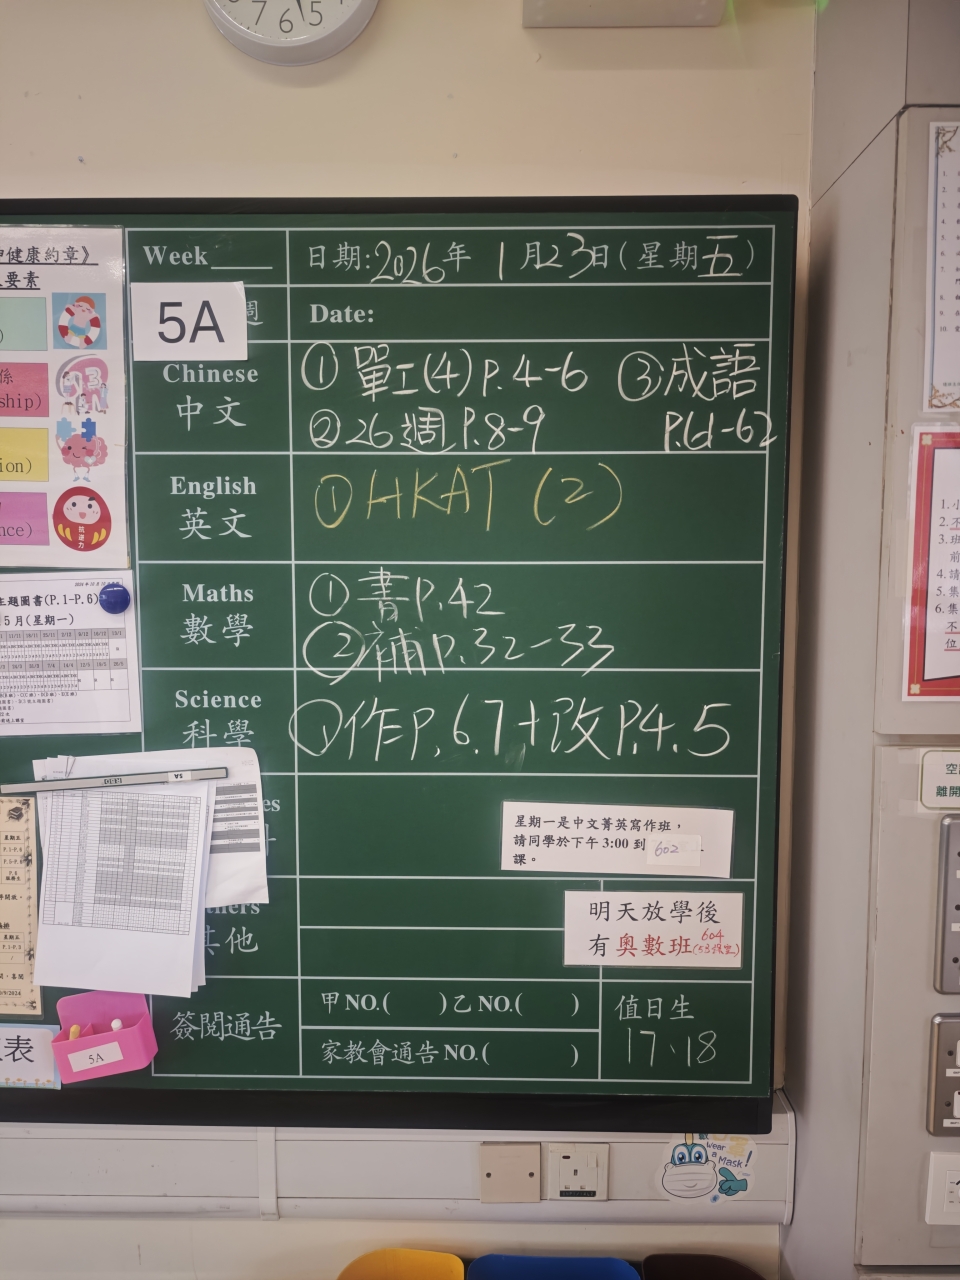 7 6 5
Week
日期:2026年 1月23日(星期五)
5A
週
Date:
Chinese
中文
① 單工(4) P.4-6
② 26週 P.8-9
③ 成語
P.61-62
English
英文
① HKAT (2)
Maths
數學
① 書 P.42
② 補 P.32-33
Science
科學
① 作 P.6.7+改 P.4.5
es
星期一是中文菁英寫作班，
請同學於下午 3:00 到 602
課。
hers
其他
明天放學後
有奧數班 604
簽閱通告
甲 NO.( ) 乙 NO.( )
家教會通告 NO.( )
值日生
17、18
健康約章》
要素
係
ship)
ion)
nce)
抗逆力
主題圖書(P.1-P.6)
5 月(星期一)
5A
星期五
表
5A
Wear
a
Mask!
1. 小
2. 不
3. 班
前
4. 請
5. 集
6. 集
不
位
空
離開